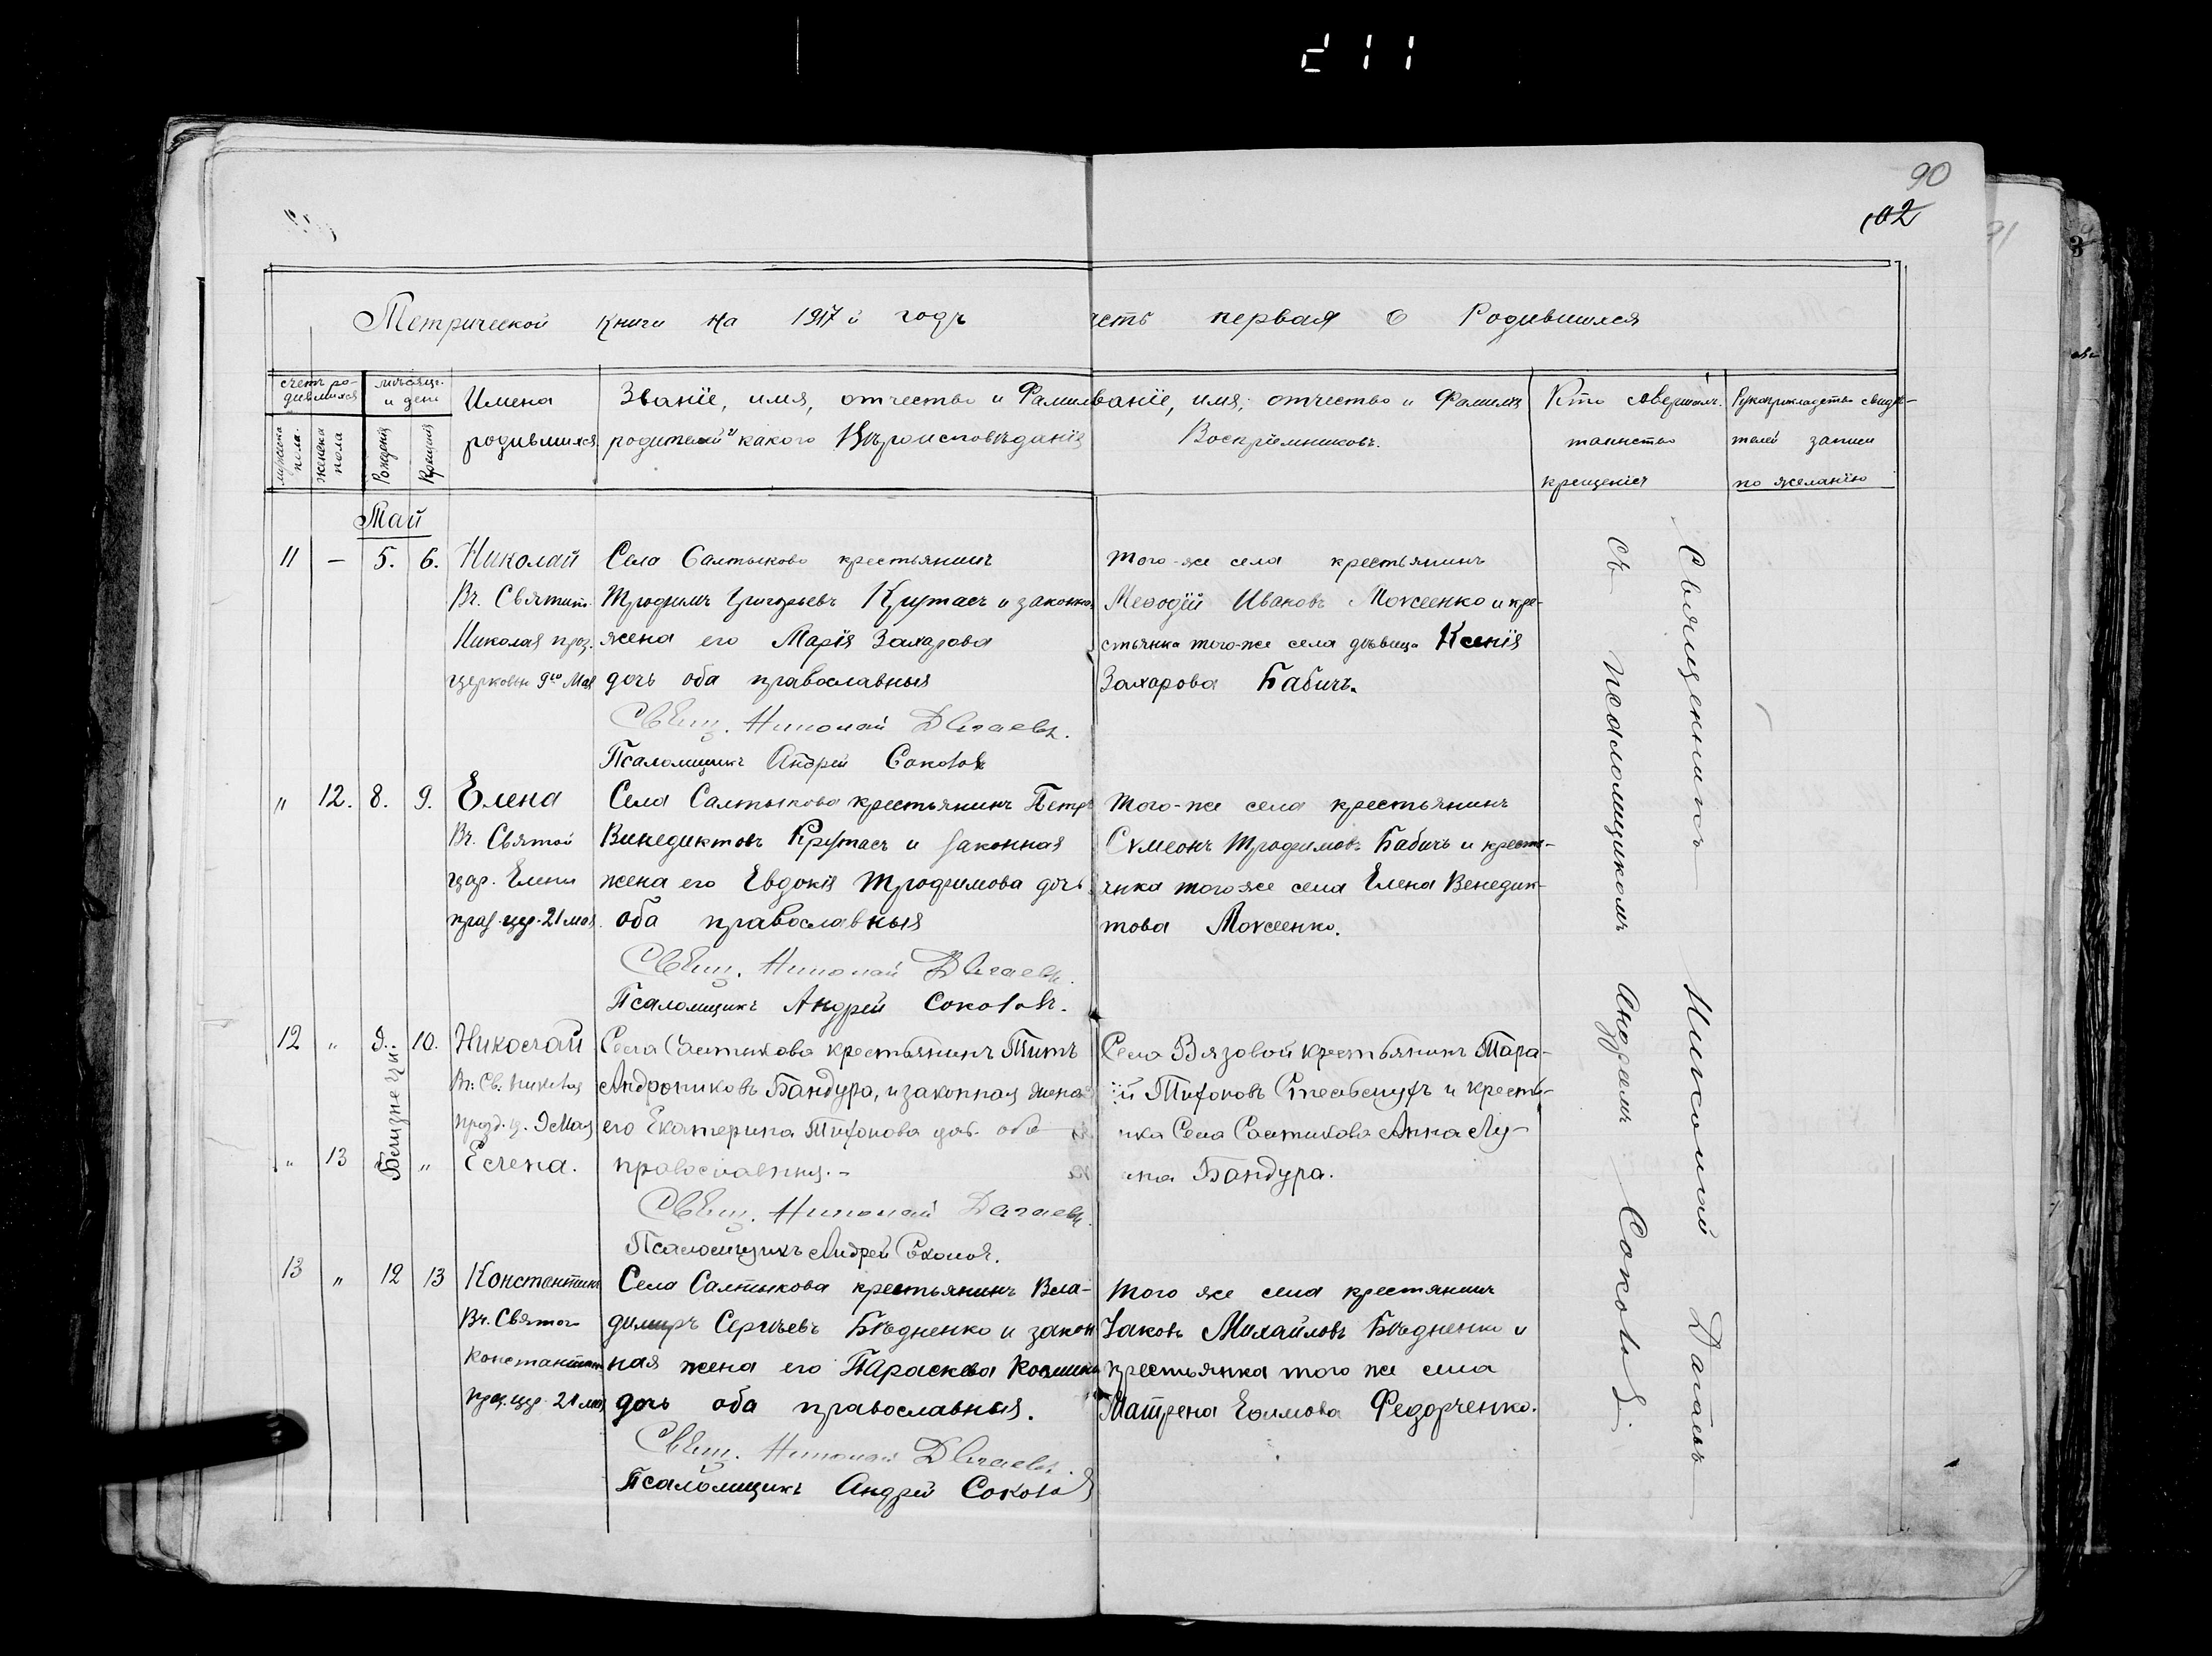 211
90
102
Метрической книги на 1917 й годъ часть первая о Родившихся
счетъ родившихся
мѣсяцъ и день
мужеска пола.
женска пола
Рожденія
Крещенія
Имена
родившихся
Званіе, имя, отчество и Фамилія
родителей и какого Вѣроисповѣданія
Званіе, имя, отчество и Фамилія
Воспріемниковъ.
Кто совершалъ
таинство
крещенія
Рукоприкладство свидѣ-
телей записи
по желанію
Май
11 — 5. 6. Николай
Въ. Святит.
Николая праз.
церковью 9го Мая
Села Салтыкова крестьянинъ
Трофимъ Григорьевъ и законная
жена его Марія Захарова
дочь оба православныя
Свящ. Николай Дагаевъ.
Псаломщикъ Андрей Соколовъ
Того-же села крестьянинъ
Меѳодій Ивановъ и кре-
стьянка того-же села дѣвица Ксенія
Захарова Бабичъ.
" 12. 8. 9. Елена
Въ. Святой
цар. Елены
праз. цер. 21 мая
Села Салтыкова крестьянинъ Петръ
Винедиктовъ и законная
жена его Евдокія Трофимова дочь
оба православныя
Свящ. Николай Дагаевъ.
Псаломщикъ Андрей Соколовъ.
Того-же села крестьянинъ
Сѵмеонъ Трофимовъ Бабичъ и кресть-
янка того же села Елена Венедик-
това
12 " 9. 10. Николай
Въ. Св. Николая
празд. ц. 9 Мая
" 13 " Елена.
Близнецы
Села Салтыкова крестьянинъ Титъ
Андрониковъ Бандура, и законная жена
его Екатерина Тихонова доч. оба
православныя.-
Свящ. Николай Дагаевъ.
Псаломщикъ Андрей Соколовъ.
Села Вязовой крестьянинъ
Тихоновъ и кресть-
янка Села Салтыкова Анна
Бандура.
13 " 12 13 Константинъ
Въ. Святого
Константина
праз. цер. 21 мая
Села Салтыкова крестьянинъ Вла-
димиръ Сергѣевъ Бѣдненко и закон
ная жена его Параскева Космина
дочь оба православныя.
Свящ. Николай Дагаевъ.
Псаломщикъ Андрей Соколовъ
Того же села крестянинъ
Іаковъ Михайловъ Бѣдненко и
крестьянка того же села
Матрена Ефимова Федорченко.
Священникъ Николай Дагаевъ
съ псаломщикомъ Андреемъ Соколов.